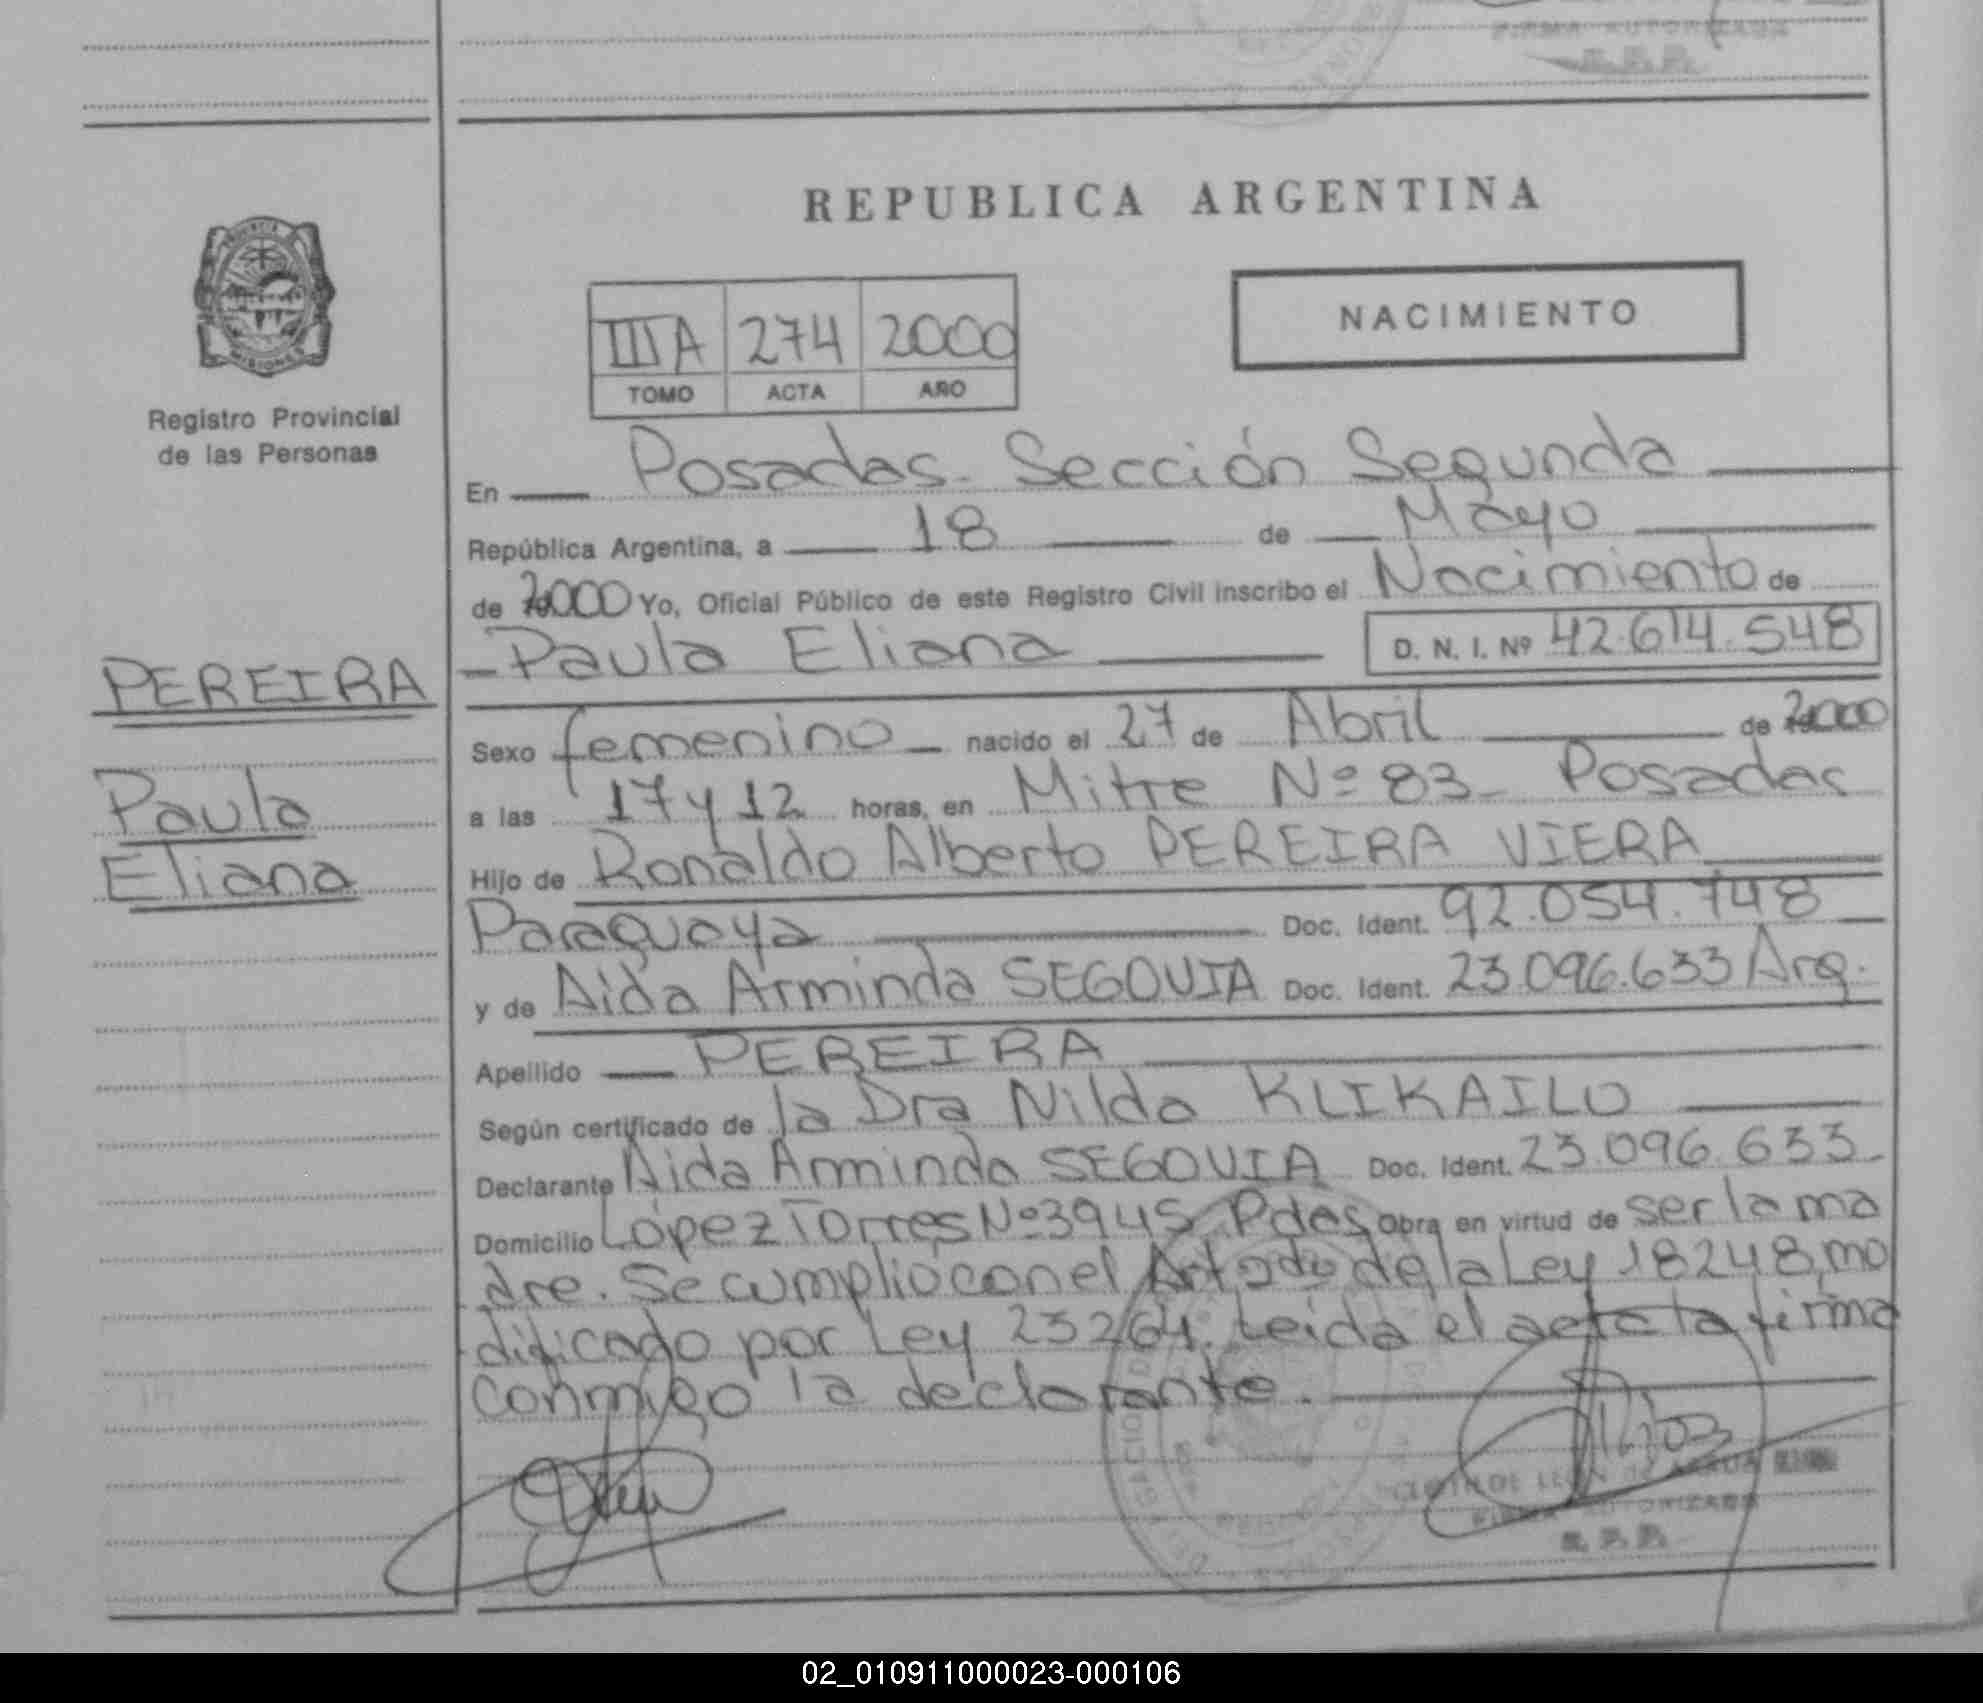 FIRMA AUTORIZADA
R.P.P.
REPUBLICA ARGENTINA
PROVINCIA
MISIONES
Registro Provincial
de las Personas
IIIA 274 2000
TOMO ACTA AÑO
NACIMIENTO
En Posadas - Sección Segunda
República Argentina, a 18 de Mayo
de 2000 Yo, Oficial Público de este Registro Civil inscribo el Nacimiento de
Paula Eliana D. N. I. Nº 42.614.548
PEREIRA
Paula
Eliana
Sexo femenino nacido el 27 de Abril de 2000
a las 17 y 12 horas, en Mitre Nº 83 - Posadas
Hijo de Ronaldo Alberto PEREIRA VIERA
Paraguaya Doc. Ident. 92.054.748
y de Aida Arminda SEGOVIA Doc. Ident. 23.096.633 Arg.
Apellido PEREIRA
Según certificado de la Dra Nilda KLIKAILO
Declarante Aida Arminda SEGOVIA Doc. Ident. 23.096.633
Domicilio López Torres Nº 3945 Pdas Obra en virtud de ser la ma
dre. Se cumplio con el Art 2do de la Ley 18248, mo
dificado por Ley 23264. Leida el acta la firma
conmigo la declarante.
FIRMA AUTORIZADA
R.P.P.
02_010911000023-000106